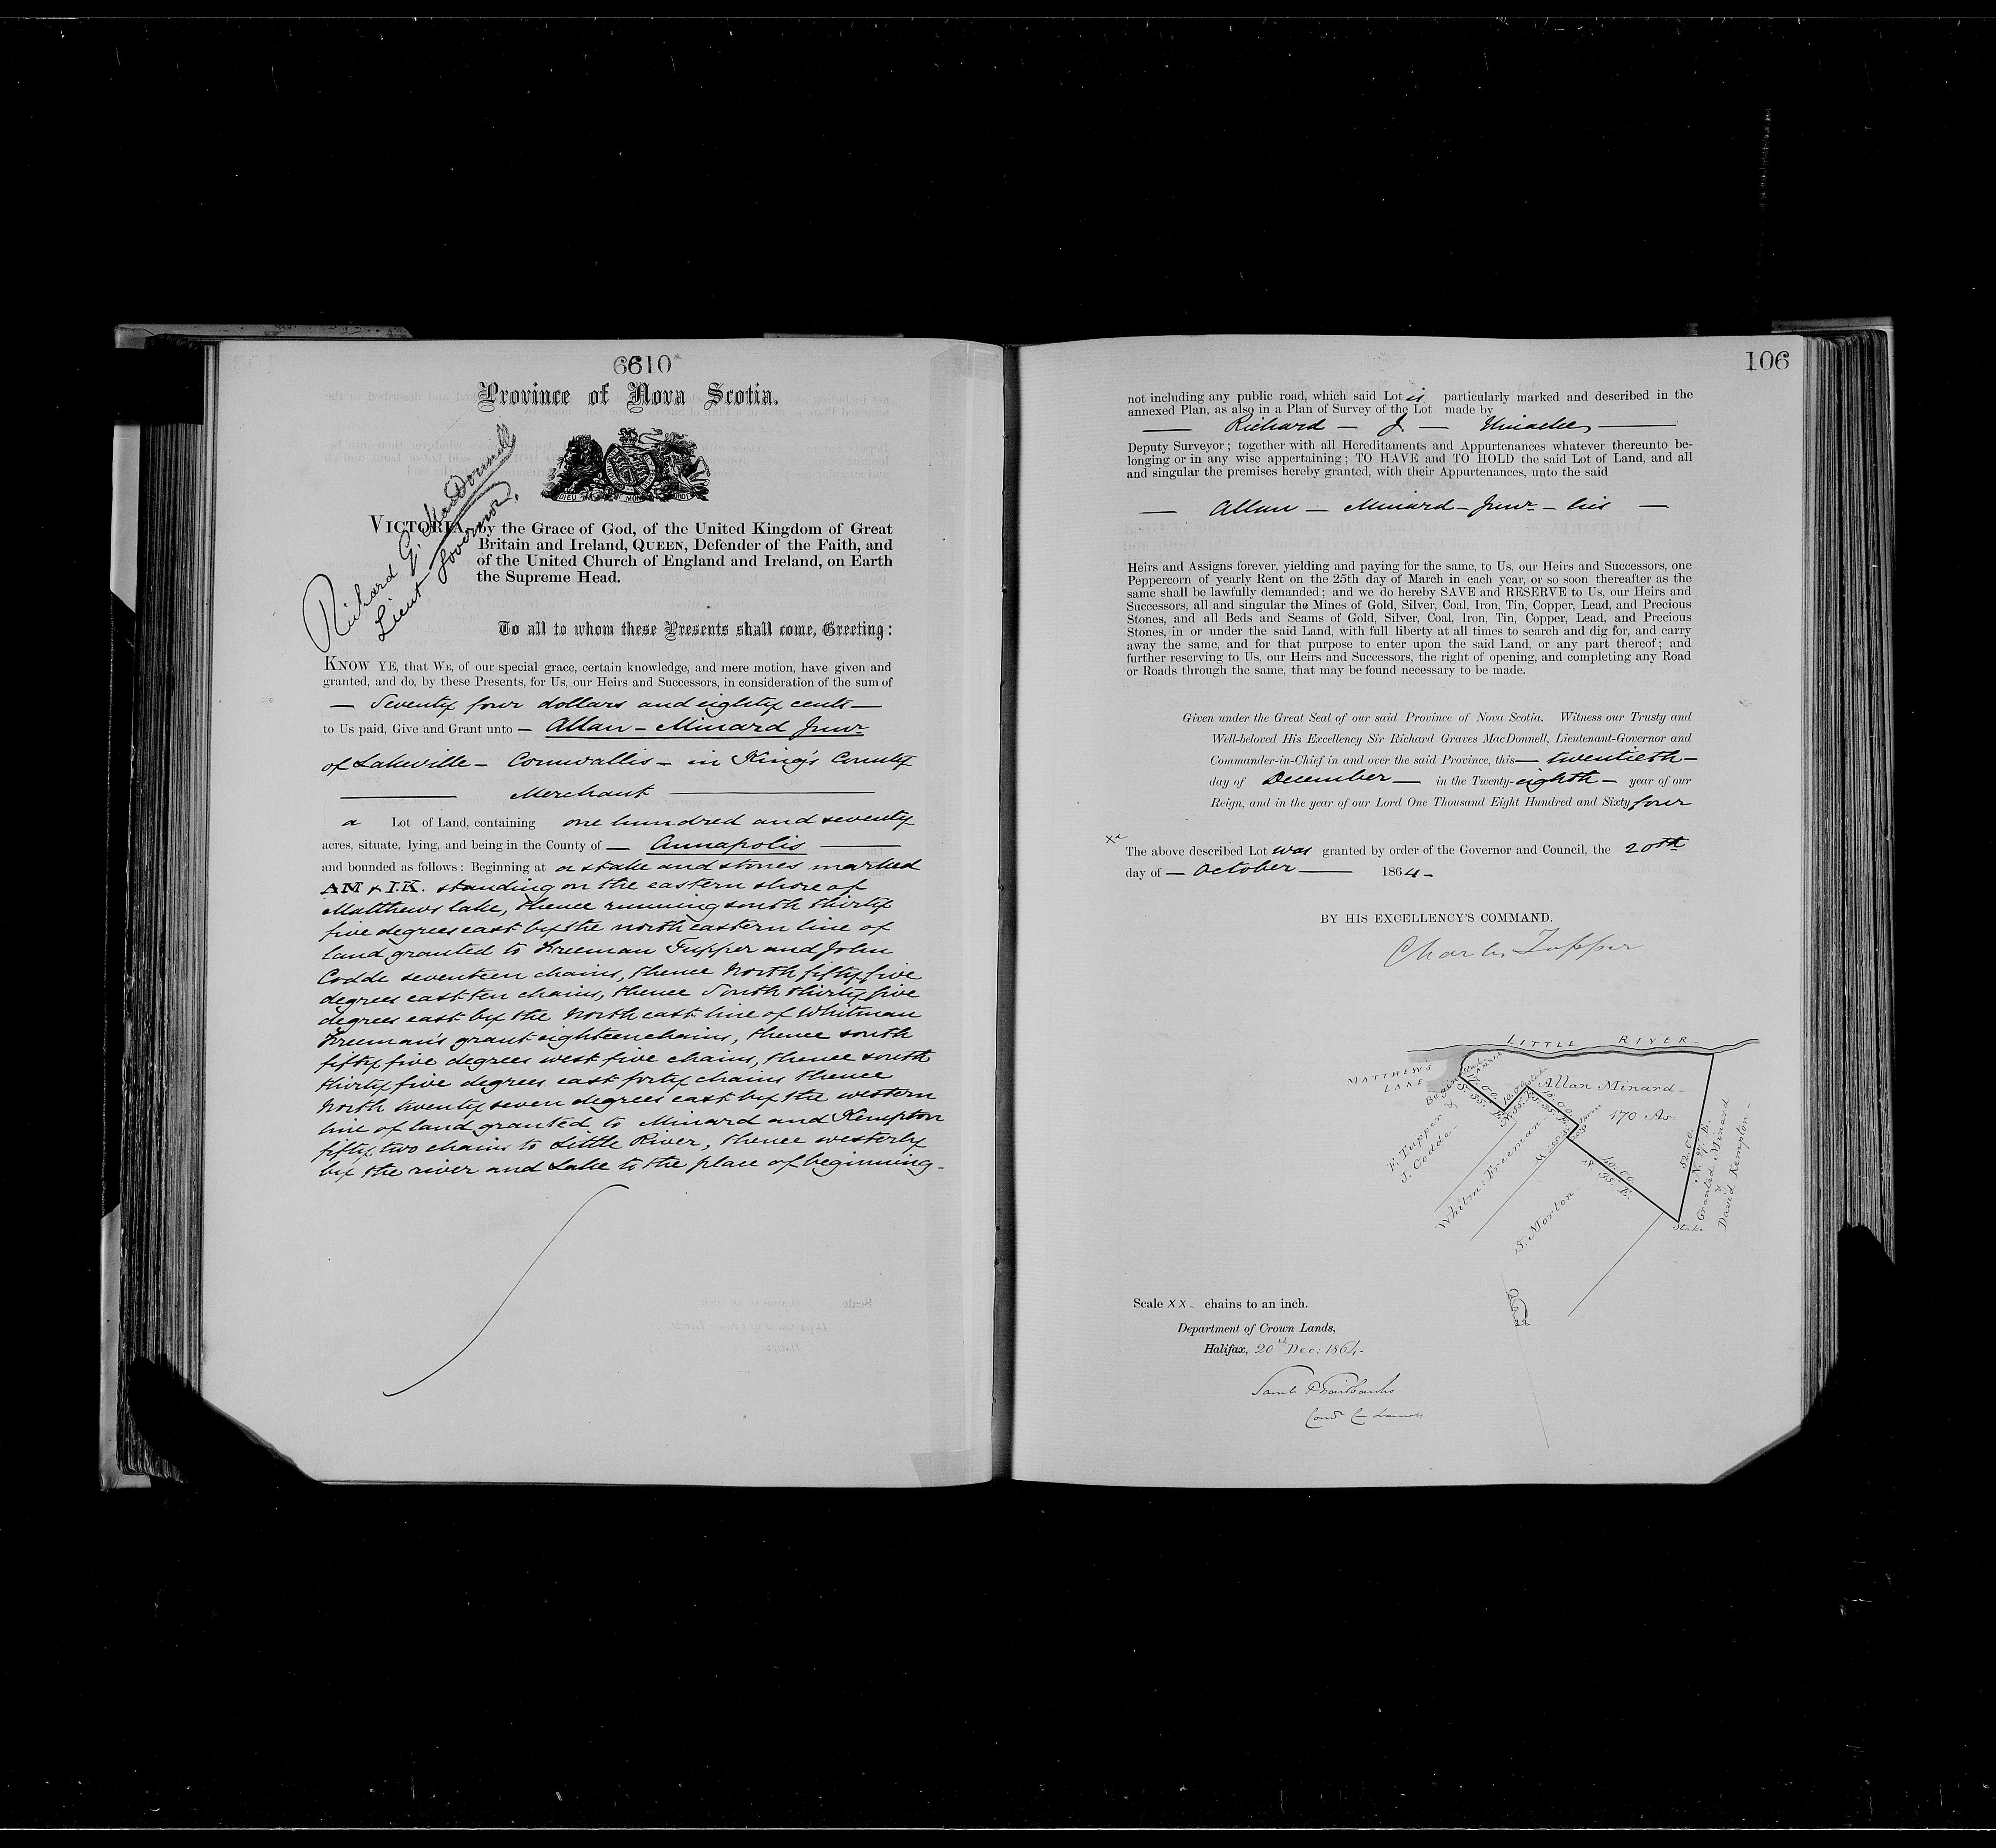 6610
Province of Nova Scotia.
DIEU ET MON DROIT
Richard G. MacDonnell
Lieut Governor.
VICTORIA, by the Grace of God, of the United Kingdom of Great
Britain and Ireland, QUEEN, Defender of the Faith, and
of the United Church of England and Ireland, on Earth
the Supreme Head.
To all to whom these Presents shall come, Greeting:
KNOW YE, that WE, of our special grace, certain knowledge, and mere motion, have given and
granted, and do, by these Presents, for Us, our Heirs and Successors, in consideration of the sum of
— Seventy four dollars and eighty cents —
to Us paid, Give and Grant unto — Allan - Minard Junr
of Lakeville - Cornwallis - in King's County
Merchant
a Lot of Land, containing one hundred and seventy
acres, situate, lying, and being in the County of — Annapolis
and bounded as follows: Beginning at a stake and stones marked
AM & I.K. standing on the eastern shore of
Matthews lake, thence running south thirty
five degrees east by the north eastern line of
land granted to Freeman Tupper and John
Codde seventeen chains, thence North fifty five
degrees east ten chains, thence South thirty five
degrees east by the North east line of Whitman
Freeman's grant eighteen chains, thence south
fifty five degrees west five chains, thence south
thirty five degrees east forty chains thence
North twenty seven degrees east by the western
line of land granted to Minard and Kempton
fifty two chains to Little River, thence westerly
by the river and Lake to the place of beginning -
106
not including any public road, which said Lot is particularly marked and described in the
annexed Plan, as also in a Plan of Survey of the Lot made by
— Richard — J. — Uniacke —
Deputy Surveyor; together with all Hereditaments and Appurtenances whatever thereunto be-
longing or in any wise appertaining; TO HAVE and TO HOLD the said Lot of Land, and all
and singular the premises hereby granted, with their Appurtenances, unto the said
— Allan — Minard - Junr - his —
Heirs and Assigns forever, yielding and paying for the same, to Us, our Heirs and Successors, one
Peppercorn of yearly Rent on the 25th day of March in each year, or so soon thereafter as the
same shall be lawfully demanded; and we do hereby SAVE and RESERVE to Us, our Heirs and
Successors, all and singular the Mines of Gold, Silver, Coal, Iron, Tin, Copper, Lead, and Precious
Stones, and all Beds and Seams of Gold, Silver, Coal, Iron, Tin, Copper, Lead, and Precious
Stones, in or under the said Land, with full liberty at all times to search and dig for, and carry
away the same, and for that purpose to enter upon the said Land, or any part thereof; and
further reserving to Us, our Heirs and Successors, the right of opening, and completing any Road
or Roads through the same, that may be found necessary to be made.
Given under the Great Seal of our said Province of Nova Scotia. Witness our Trusty and
Well-beloved His Excellency Sir Richard Graves MacDonnell, Lieutenant-Governor and
Commander-in-Chief in and over the said Province, this — twentieth —
day of December — in the Twenty-eighth — year of our
Reign, and in the year of our Lord One Thousand Eight Hundred and Sixty four
The above described Lot was granted by order of the Governor and Council, the 20th
day of — October — 1864 -
BY HIS EXCELLENCY'S COMMAND.
Charles Tupper
LITTLE RIVER -
MATTHEWS
LAKE
Allan Minard -
170 As.
F. Tupper &
J. Codde -
Whitm: Freeman
S. Morton
S. 35. E.
52.00.
N. 27 E.
Granted Minard
&
David Kempton -
Stake
Scale XX - chains to an inch.
Department of Crown Lands,
Halifax, 20th Dec: 1864 -
Saml P Fairbanks
Comr C Lands